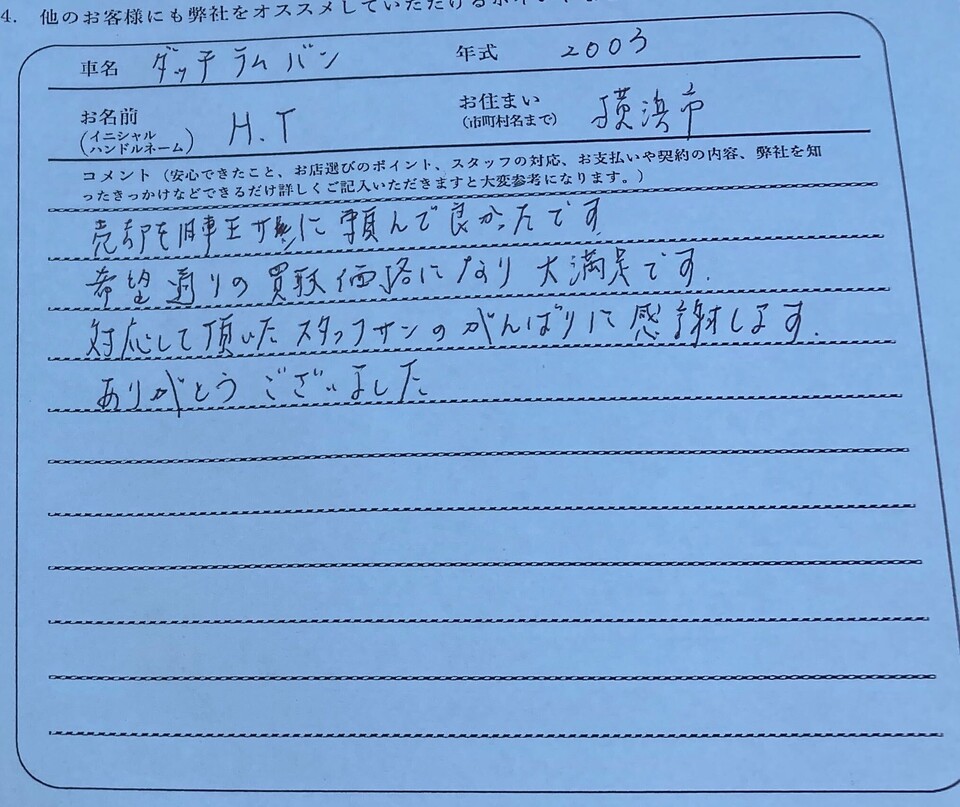 4. 他のお客様にも弊社をオススメしていただける
車名 ダッチラムバン 年式 2003
お名前 (イニシャル ハンドルネーム) H.T お住まい (市町村名まで) 横浜市
コメント（安心できたこと、お店選びのポイント、スタッフの対応、お支払いや契約の内容、弊社を知
ったきっかけなどできるだけ詳しくご記入いただきますと大変参考になります。）
売却を旧車王サンに頼んで良かったです
希望通りの買取価格になり大満足です.
対応して頂いたスタッフサンのがんばりに感謝します.
ありがとうございました